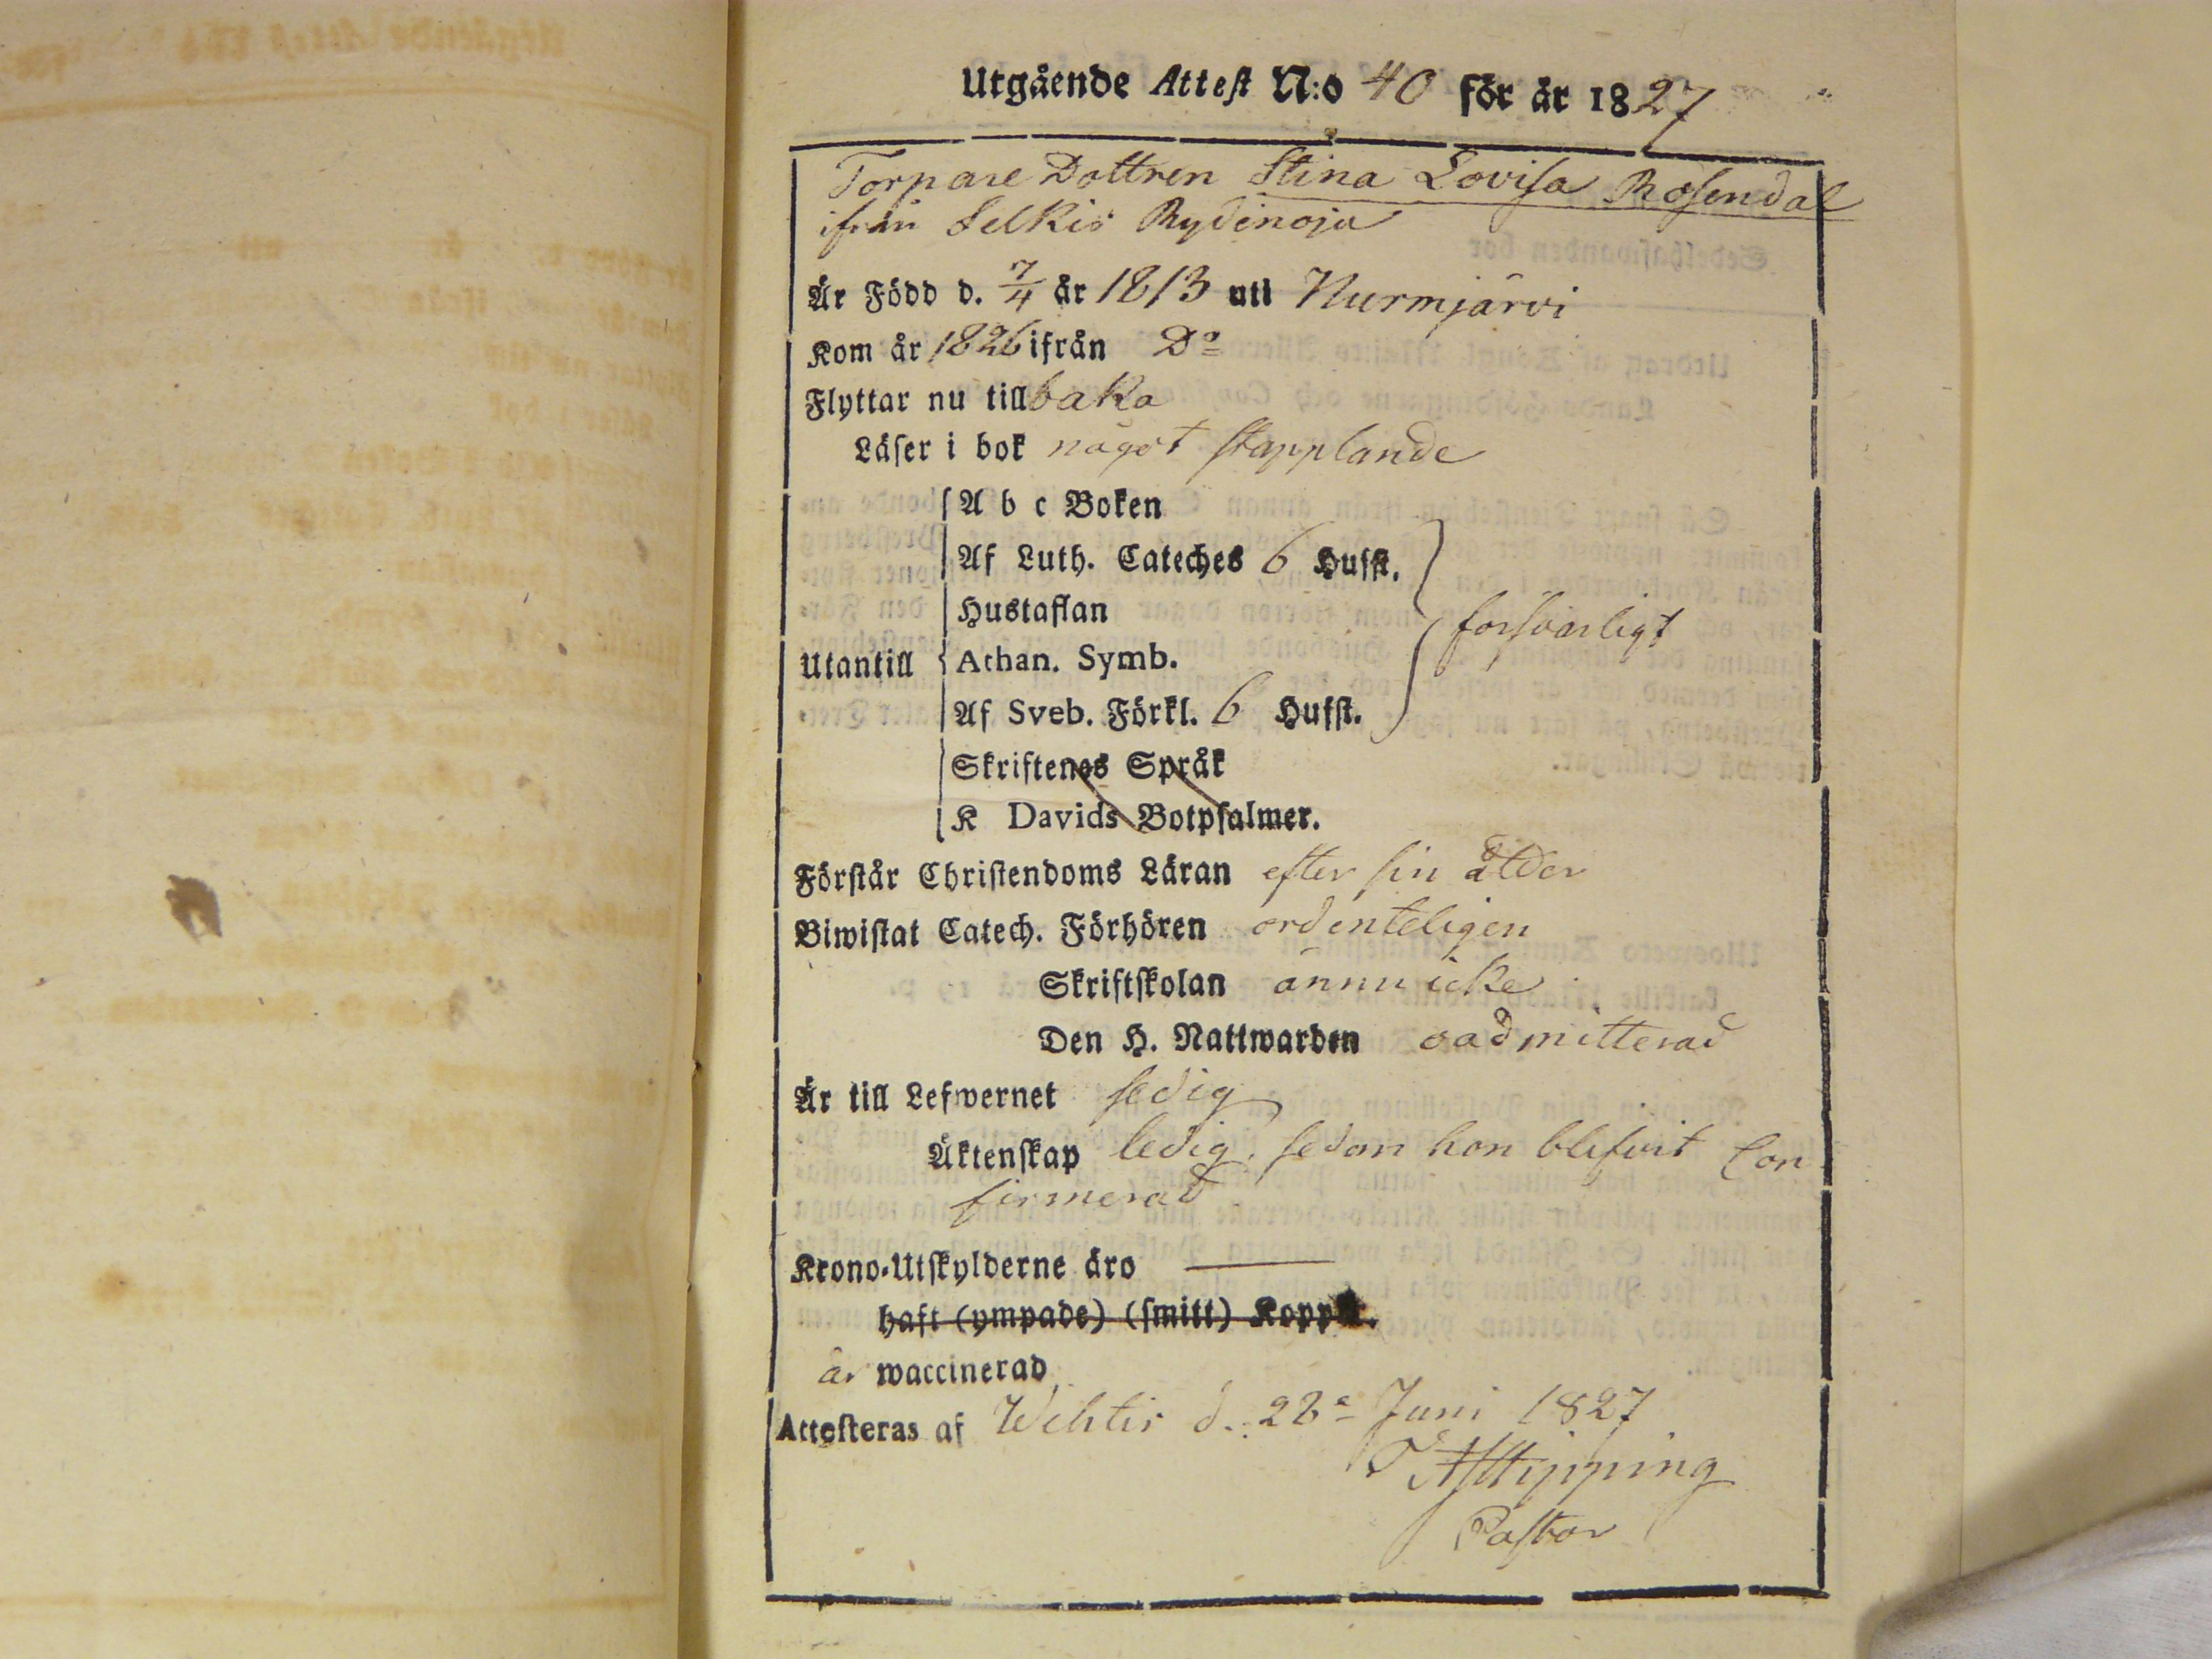 Utgående Attest N:o 40 för år 1827
Torpare Dottren Stina Lovisa Rosendal
ifrån Selkis Rydinoja
Är Född d. 7/4 år 1813 uti Nurmjärvi
Kom år 1826 ifrån Do
Flyttar nu tillbaka
Läser i bok något stapplande
A b c Boken
Af Luth. Cateches 6 Hufst.
Hustaflan
försvarligt
Utantill
Athan. Symb.
Af Sveb. Förkl. 6 Hufst.
Skriftenes Språk
K Davids Botpsalmer.
Förstår Christendoms Läran efter sin ålder
Biwistat Catech. Förhören ordenteligen
Skriftskolan ännu icke
Den H. Nattwarden oadmitterad
Är till Lefwernet sedig
Äktenskap ledig, sedan hon blifvit Con
firmerad
Krono-Utskylderne äro
haft (ympade) (smitt) Koppor.
är waccinerad
Attesteras af Wehtis d. 28e Juni 1827
Pastor